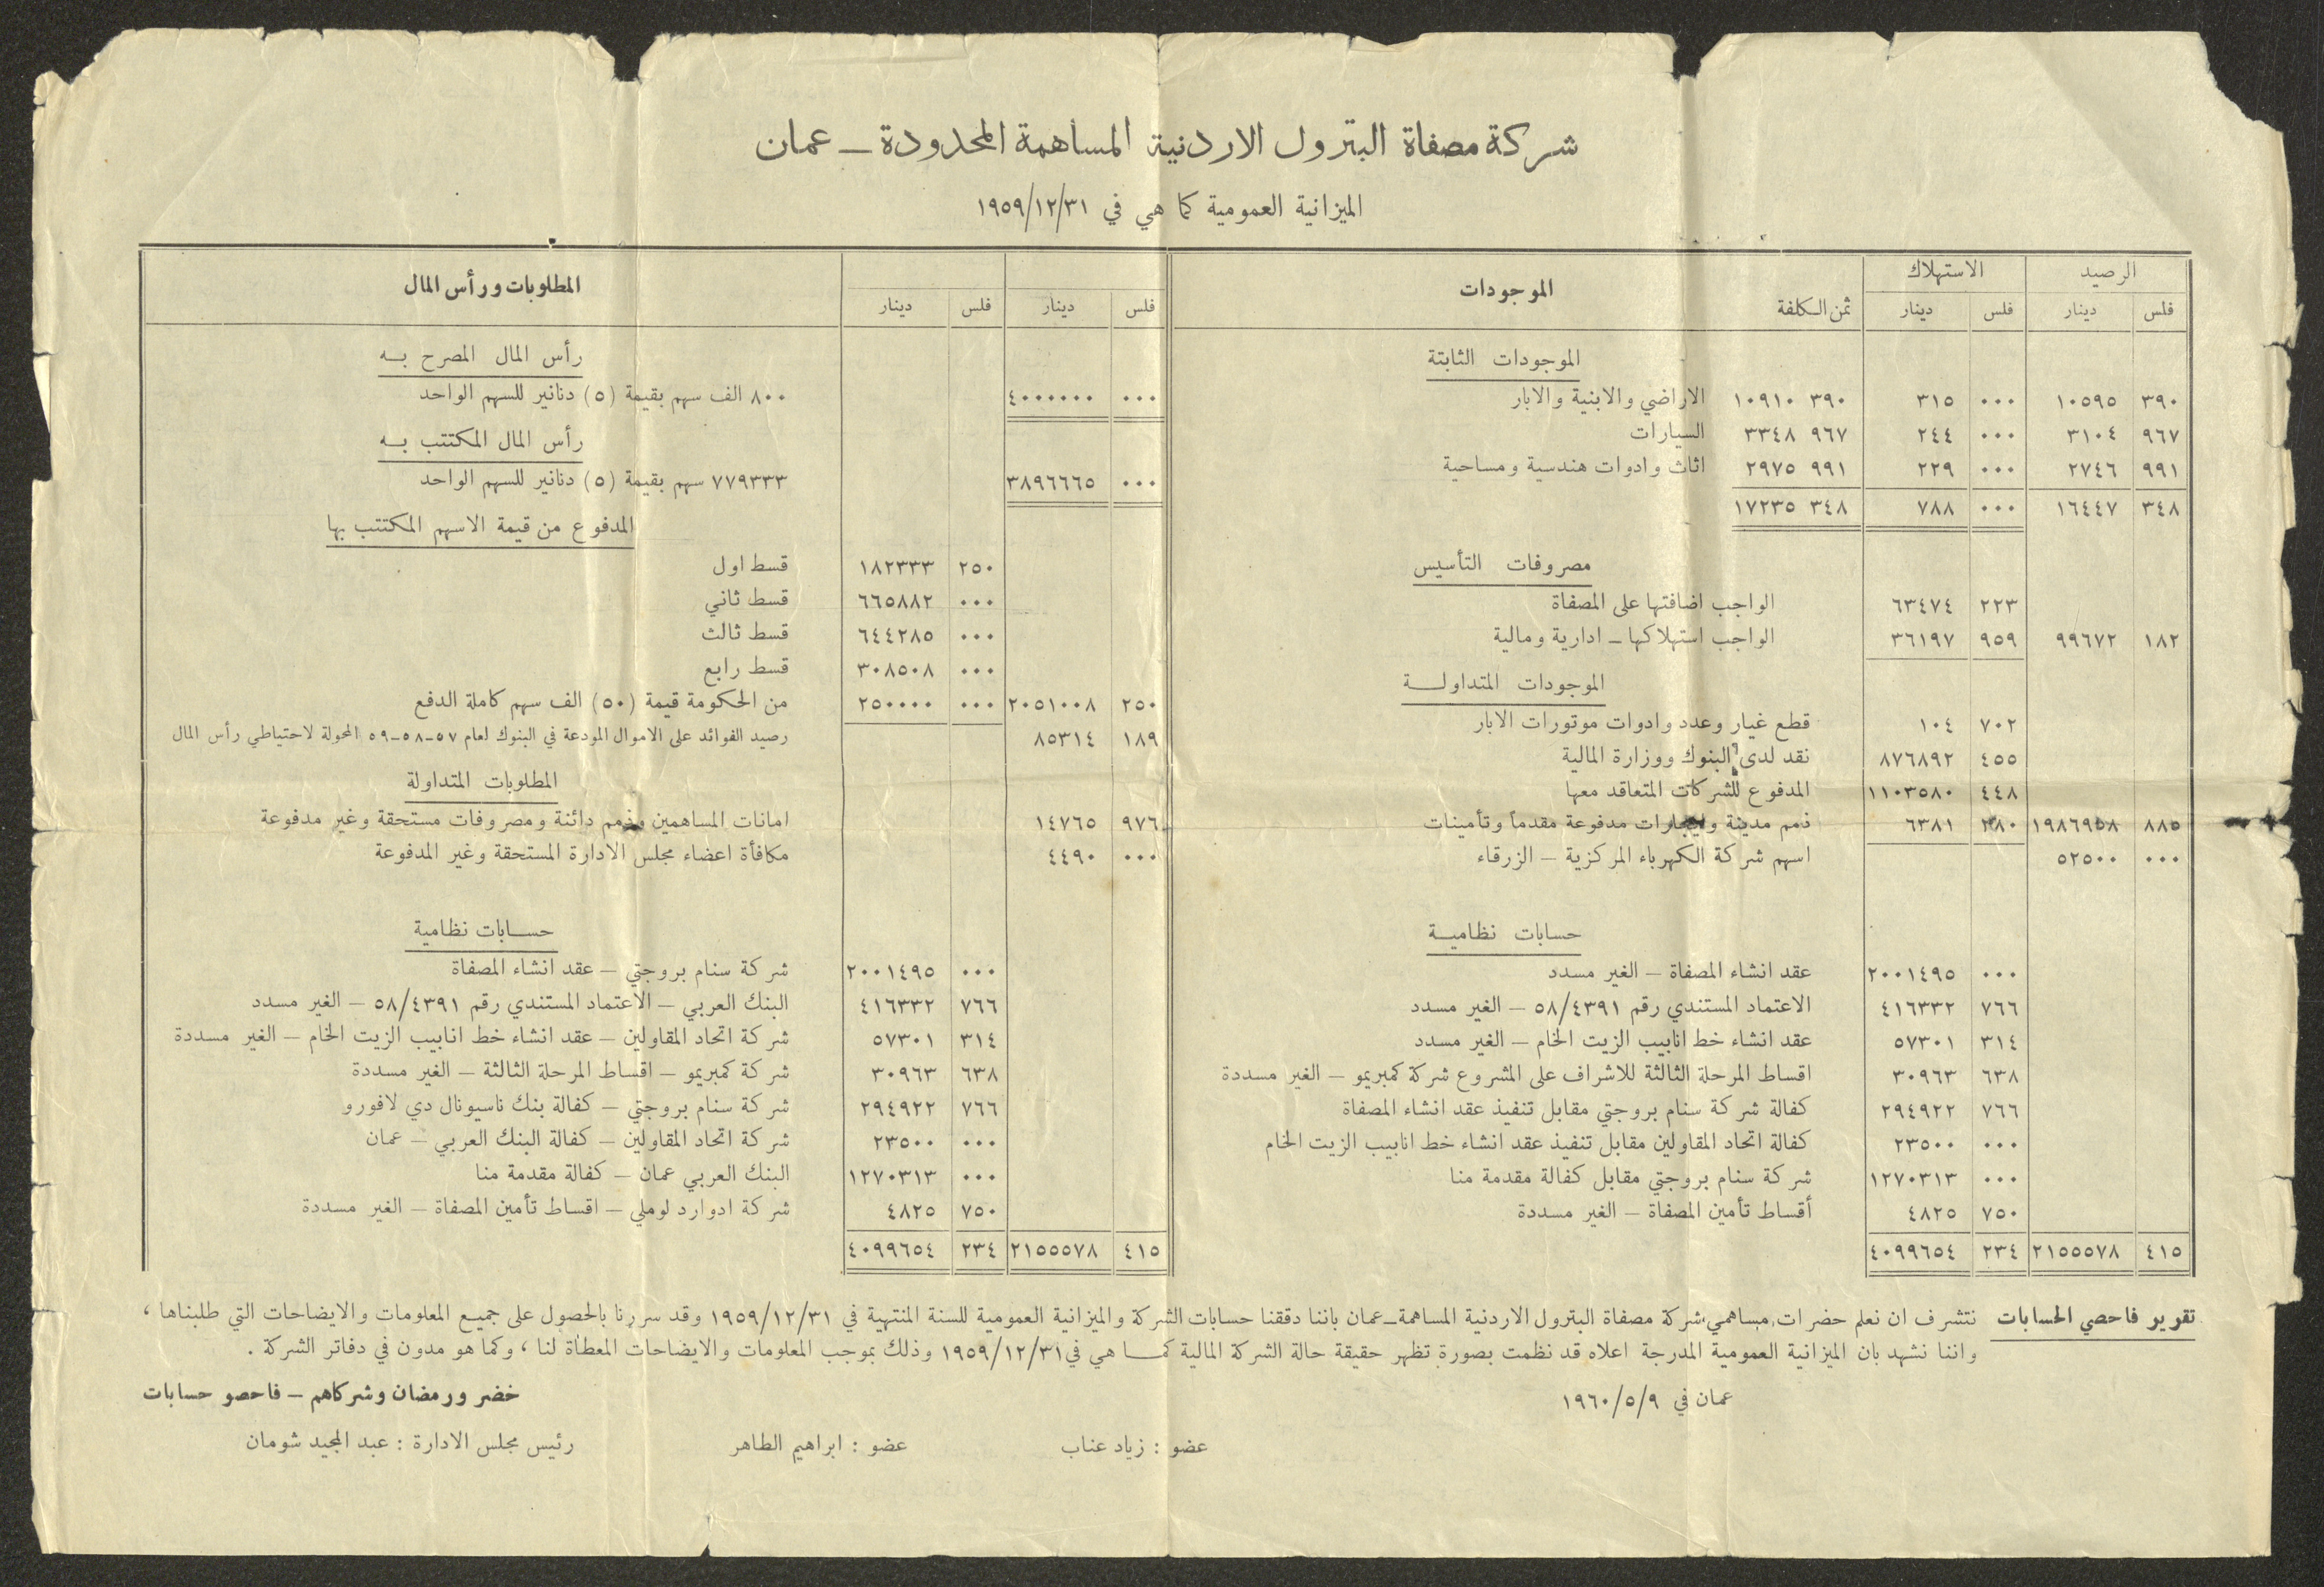 شركة مصفاة البترول الاردنية المساهمة المحدودة – عمان
الميزانية العمومية كما هي في ١٩٥٩/١٢/٣١
الرصيد الاستهلاك الموجودات
فلس دينار فلس دينار ثمن الكلفة
الموجودات الثابتة
٣٩٠ ١٠٥٩٥ ٠٠٠ ٣١٥ ٣٩٠ ١٠٩١٠ الاراضي والابنية والابار
٩٦٧ ٣١٠٤ ٠٠٠ ٢٤٤ ٩٦٧ ٣٣٤٨ السيارات
٩٩١ ٢٧٤٦ ٠٠٠ ٢٢٩ ٩٩١ ٢٩٧٥ اثاث وادوات هندسية ومساحية
٣٤٨ ١٦٤٤٧ ٠٠٠ ٧٨٨ ٣٤٨ ١٧٢٣٥
مصروفات التأسيس
٢٢٣ ٦٣٤٧٤ الواجب اضافتها على المصفاة
١٨٢ ٩٩٦٧٢ ٩٥٩ ٣٦١٩٧ الواجب استهلاكها – ادارية ومالية
الموجودات المتداولة
٧٠٢ ١٠٤ قطع غيار وعدد وادوات موتورات الابار
٤٥٥ ٨٧٦٨٩٢ نقد لدى البنوك ووزارة المالية
٤٤٨ ١١٠٣٥٨٠ المدفوع للشركات المتعاقد معها
٨٨٥ ١٩٨٦٩٥٨ ٢٨٠ ٦٣٨١ ذمم مدينة وايجارات مدفوعة مقدماً وتأمينات
٠٠٠ ٥٢٥٠٠ اسهم شركة الكهرباء المركزية – الزرقاء
حسابات نظامية
٠٠٠ ٢٠٠١٤٩٥ عقد انشاء المصفاة – الغير مسدد
٧٦٦ ٤١٦٣٣٢ الاعتماد المستندي رقم ٥٨/٤٣٩١ – الغير مسدد
٣١٤ ٥٧٣٠١ عقد انشاء خط انابيب الزيت الخام – الغير مسدد
٦٣٨ ٣٠٩٦٣ اقساط المرحلة الثالثة للاشراف على المشروع شركة كمبريمو – الغير مسددة
٧٦٦ ٢٩٤٩٢٢ كفالة شركة سنام بروجتي مقابل تنفيذ عقد انشاء المصفاة
٠٠٠ ٢٣٥٠٠ كفالة اتحاد المقاولين مقابل تنفيذ عقد انشاء خط انابيب الزيت الخام
٠٠٠ ١٢٧٠٣١٣ شركة سنام بروجتي مقابل كفالة مقدمة منا
٧٥٠ ٤٨٢٥ أقساط تأمين المصفاة – الغير مسددة
٤١٥ ٢١٥٥٥٧٨ ٢٣٤ ٤٠٩٩٦٥٤
المطلوبات ورأس المال
فلس دينار فلس دينار
رأس المال المصرح به
٠٠٠ ٤٠٠٠٠٠٠ ٨٠٠ الف سهم بقيمة (٥) دنانير للسهم الواحد
رأس المال المكتتب به
٠٠٠ ٣٨٩٦٦٦٥ ٧٧٩٣٣٣ سهم بقيمة (٥) دنانير للسهم الواحد
المدفوع من قيمة الاسهم المكتتب بها
٢٥٠ ١٨٢٣٣٣ قسط اول
٠٠٠ ٦٦٥٨٨٢ قسط ثاني
٠٠٠ ٦٤٤٢٨٥ قسط ثالث
٠٠٠ ٣٠٨٥٠٨ قسط رابع
٢٥٠ ٢٠٥١٠٠٨ ٠٠٠ ٢٥٠٠٠٠ من الحكومة قيمة (٥٠) الف سهم كاملة الدفع
١٨٩ ٨٥٣١٤ رصيد الفوائد على الاموال المودعة في البنوك لعام ٥٧-٥٨-٥٩ المحولة لاحتياطي رأس المال
المطلوبات المتداولة
٩٧٦ ١٤٧٦٥ امانات المساهمين وذمم دائنة ومصروفات مستحقة وغير مدفوعة
٠٠٠ ٤٤٩٠ مكافأة اعضاء مجلس الادارة المستحقة وغير المدفوعة
حسابات نظامية
٠٠٠ ٢٠٠١٤٩٥ شركة سنام بروجتي – عقد انشاء المصفاة
٧٦٦ ٤١٦٣٣٢ البنك العربي – الاعتماد المستندي رقم ٥٨/٤٣٩١ – الغير مسدد
٣١٤ ٥٧٣٠١ شركة اتحاد المقاولين – عقد انشاء خط انابيب الزيت الخام – الغير مسددة
٦٣٨ ٣٠٩٦٣ شركة كمبريمو – اقساط المرحلة الثالثة – الغير مسددة
٧٦٦ ٢٩٤٩٢٢ شركة سنام بروجتي – كفالة بنك ناسيونال دي لافورو
٠٠٠ ٢٣٥٠٠ شركة اتحاد المقاولين – كفالة البنك العربي – عمان
٠٠٠ ١٢٧٠٣١٣ البنك العربي عمان – كفالة مقدمة منا
٧٥٠ ٤٨٢٥ شركة ادوارد لوملي – اقساط تأمين المصفاة – الغير مسددة
٤١٥ ٢١٥٥٥٧٨ ٢٣٤ ٤٠٩٩٦٥٤
تقرير فاحصي الحسابات نتشرف ان نعلم حضرات مساهمي شركة مصفاة البترول الاردنية المساهمة – عمان باننا دققنا حسابات الشركة والميزانية العمومية للسنة المنتهية في ١٩٥٩/١٢/٣١ وقد سررنا بالحصول على جميع المعلومات والايضاحات التي طلبناها ،
واننا نشهد بان الميزانية العمومية المدرجة اعلاه قد نظمت بصورة تظهر حقيقة حالة الشركة المالية كما هي في ١٩٥٩/١٢/٣١ وذلك بموجب المعلومات والايضاحات المعطاة لنا ، وكما هو مدون في دفاتر الشركة .
عمان في ١٩٦٠/٥/٩ خضر ورمضان وشركاهم – فاحصو حسابات
عضو : زياد عناب عضو : ابراهيم الطاهر رئيس مجلس الادارة : عبد المجيد شومان